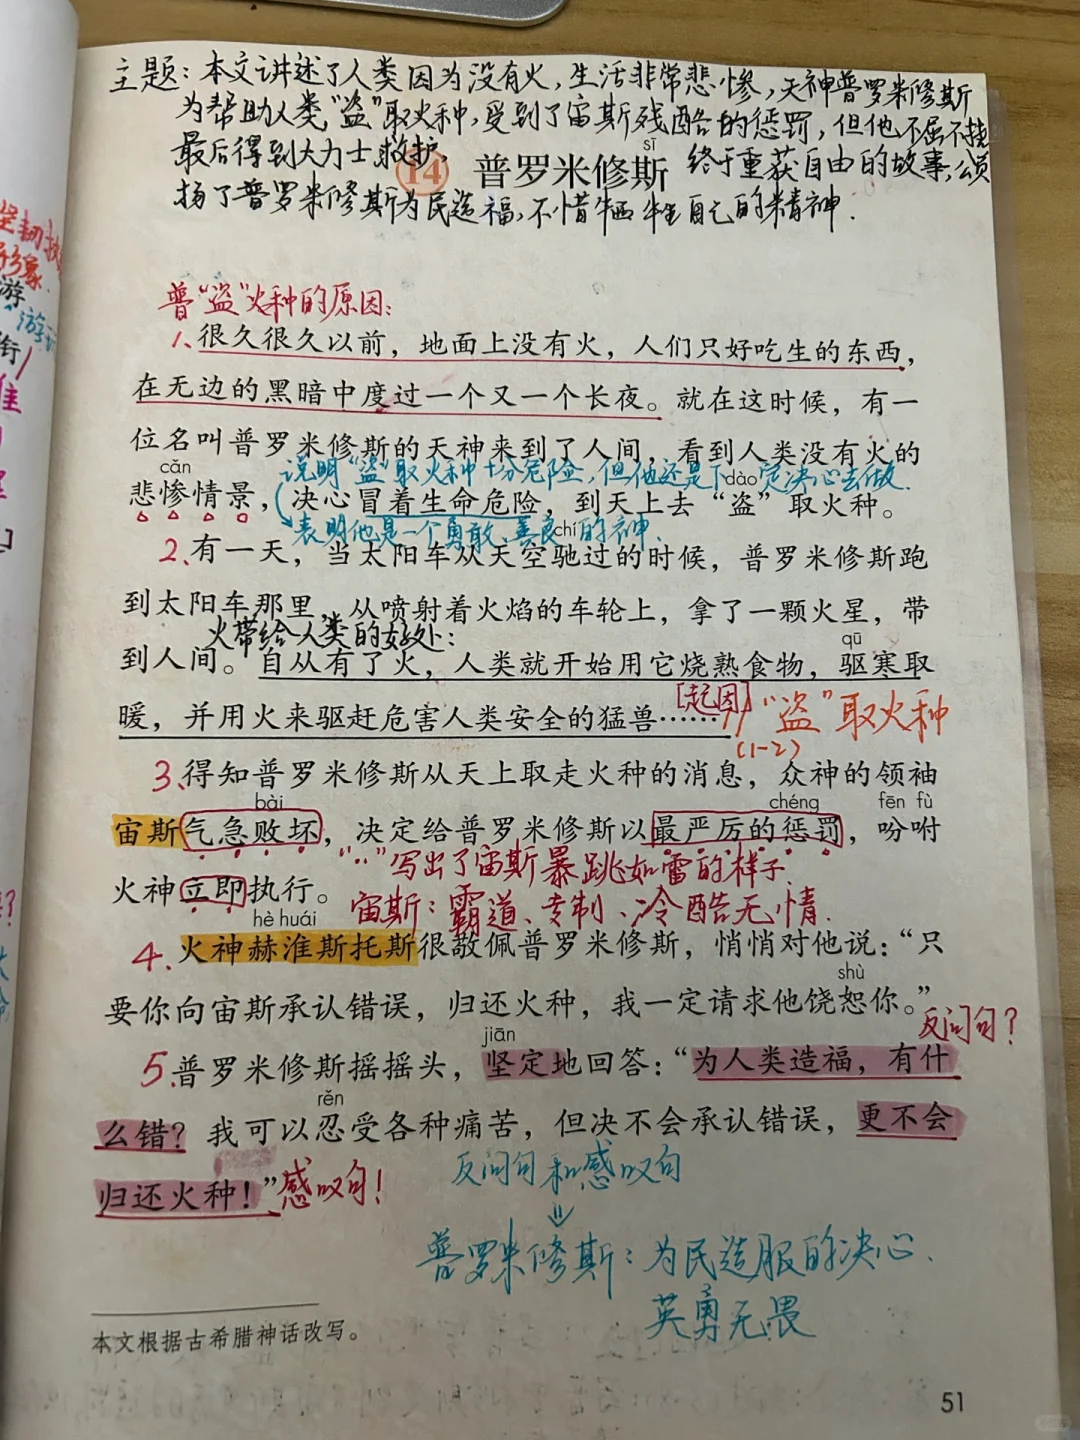 主题：本文讲述了人类因为没有火，生活非常悲惨，天神普罗米修斯
为帮助人类“盗”取火种，受到了宙斯残酷的惩罚，但他不屈不挠
最后得到大力士救护，终于重获自由的故事，颂
扬了普罗米修斯为民造福，不惜牺牲自己的精神.
sī
14 普罗米修斯
坚韧
形象.
游
普“盗”火种的原因：
1、很久很久以前，地面上没有火，人们只好吃生的东西，
在无边的黑暗中度过一个又一个长夜。就在这时候，有一
位名叫普罗米修斯的天神来到了人间，看到人类没有火的
说明“盗”取火种十分危险，但他还是下定决心去做.
cǎn dào
悲惨情景，决心冒着生命危险，到天上去“盗”取火种。
表明他是一个勇敢、善良的神.
chí
2、有一天，当太阳车从天空驰过的时候，普罗米修斯跑
到太阳车那里，从喷射着火焰的车轮上，拿了一颗火星，带
火带给人类的好处：
qū
到人间。自从有了火，人类就开始用它烧熟食物，驱寒取
暖，并用火来驱赶危害人类安全的猛兽……
[起因]
“盗”取火种
(1-2)
3、得知普罗米修斯从天上取走火种的消息，众神的领袖
bài chéng fēn fù
宙斯气急败坏，决定给普罗米修斯以最严厉的惩罚，吩咐
“··”写出了宙斯暴跳如雷的样子.
火神立即执行。
宙斯：霸道、专制、冷酷无情.
hè huái
4、火神赫淮斯托斯很敬佩普罗米修斯，悄悄对他说：“只
shù
要你向宙斯承认错误，归还火种，我一定请求他饶恕你。”
反问句？
jiān
5、普罗米修斯摇摇头，坚定地回答：“为人类造福，有什
rěn
么错？我可以忍受各种痛苦，但决不会承认错误，更不会
归还火种！”感叹句！
反问句和感叹句
普罗米修斯：为民造服的决心.
英勇无畏
本文根据古希腊神话改写。
51